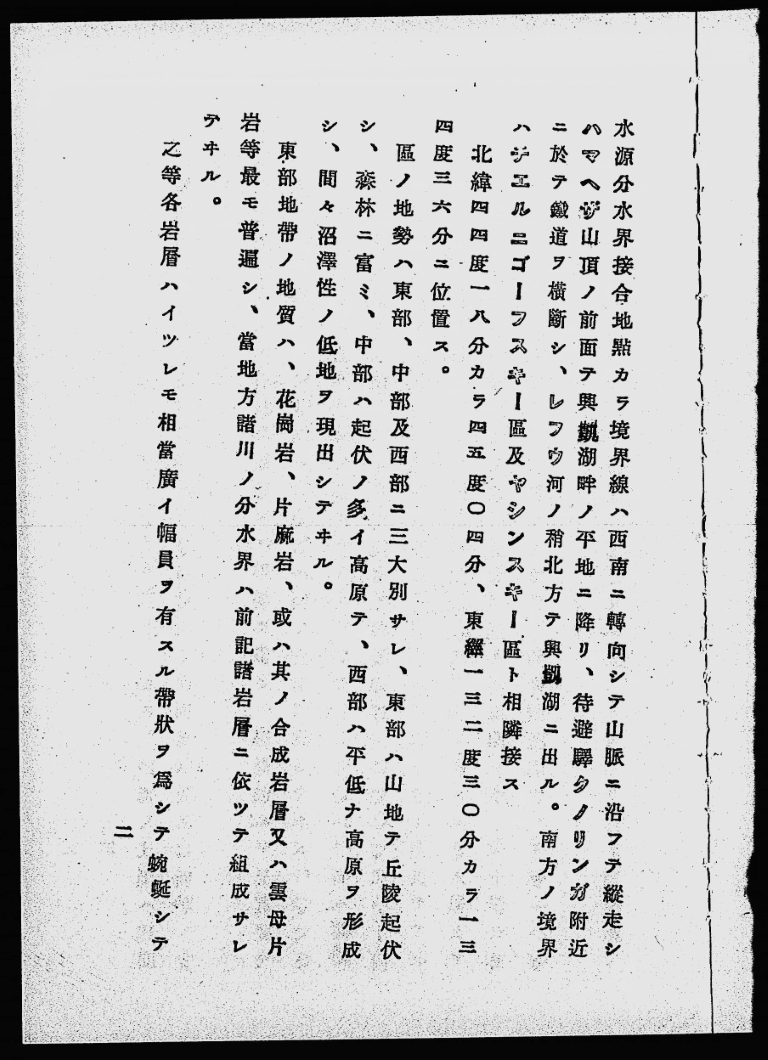 水源分水界接合地點カラ境界線ハ西南ニ轉向シテ山脈ニ沿フテ縱走シ
ハマヘザ山頂ノ前面テ興凱湖畔ノ平地ニ降リ、待避驛タノリンガ附近
ニ於テ鐵道ヲ橫斷シ、レフウ河ノ稍北方テ興凱湖ニ出ル。南方ノ境界
ハチエルニゴーフスキー區及ヤシンスキー區ト相隣接ス
北緯四四度一八分カラ四五度〇四分、東經一三二度三〇分カラ一三
四度三六分ニ位置ス。
區ノ地勢ハ東部、中部及西部ニ三大別サレ、東部ハ山地テ丘陵起伏
シ、森林ニ富ミ、中部ハ起伏ノ多イ高原テ、西部ハ平低ナ高原ヲ形成
シ、間々沼澤性ノ低地ヲ現出シテヰル。
東部地帶ノ地質ハ、花崗岩、片麻岩、或ハ其ノ合成岩層又ハ雲母片
岩等最モ普遍シ、當地方諸川ノ分水界ハ前記諸岩層ニ依ツテ組成サレ
テヰル。
之等各岩層ハイツレモ相當廣イ幅員ヲ有スル帶狀ヲ爲シテ蜿蜒シテ
二